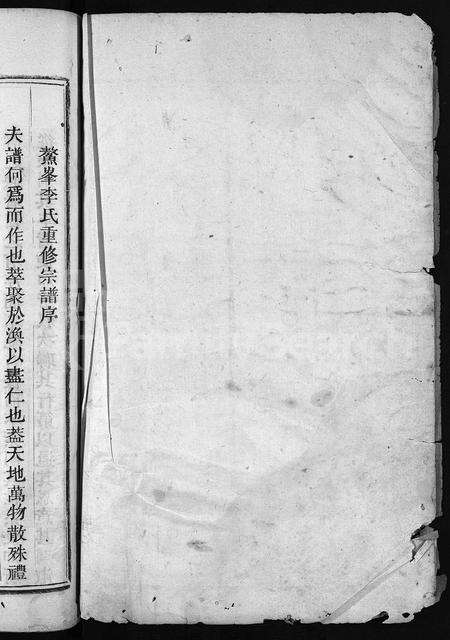 鰲峯李氏重修宗譜序
夫譜何為而作也萃聚於渙以盡仁也蓋天地萬物散殊禮